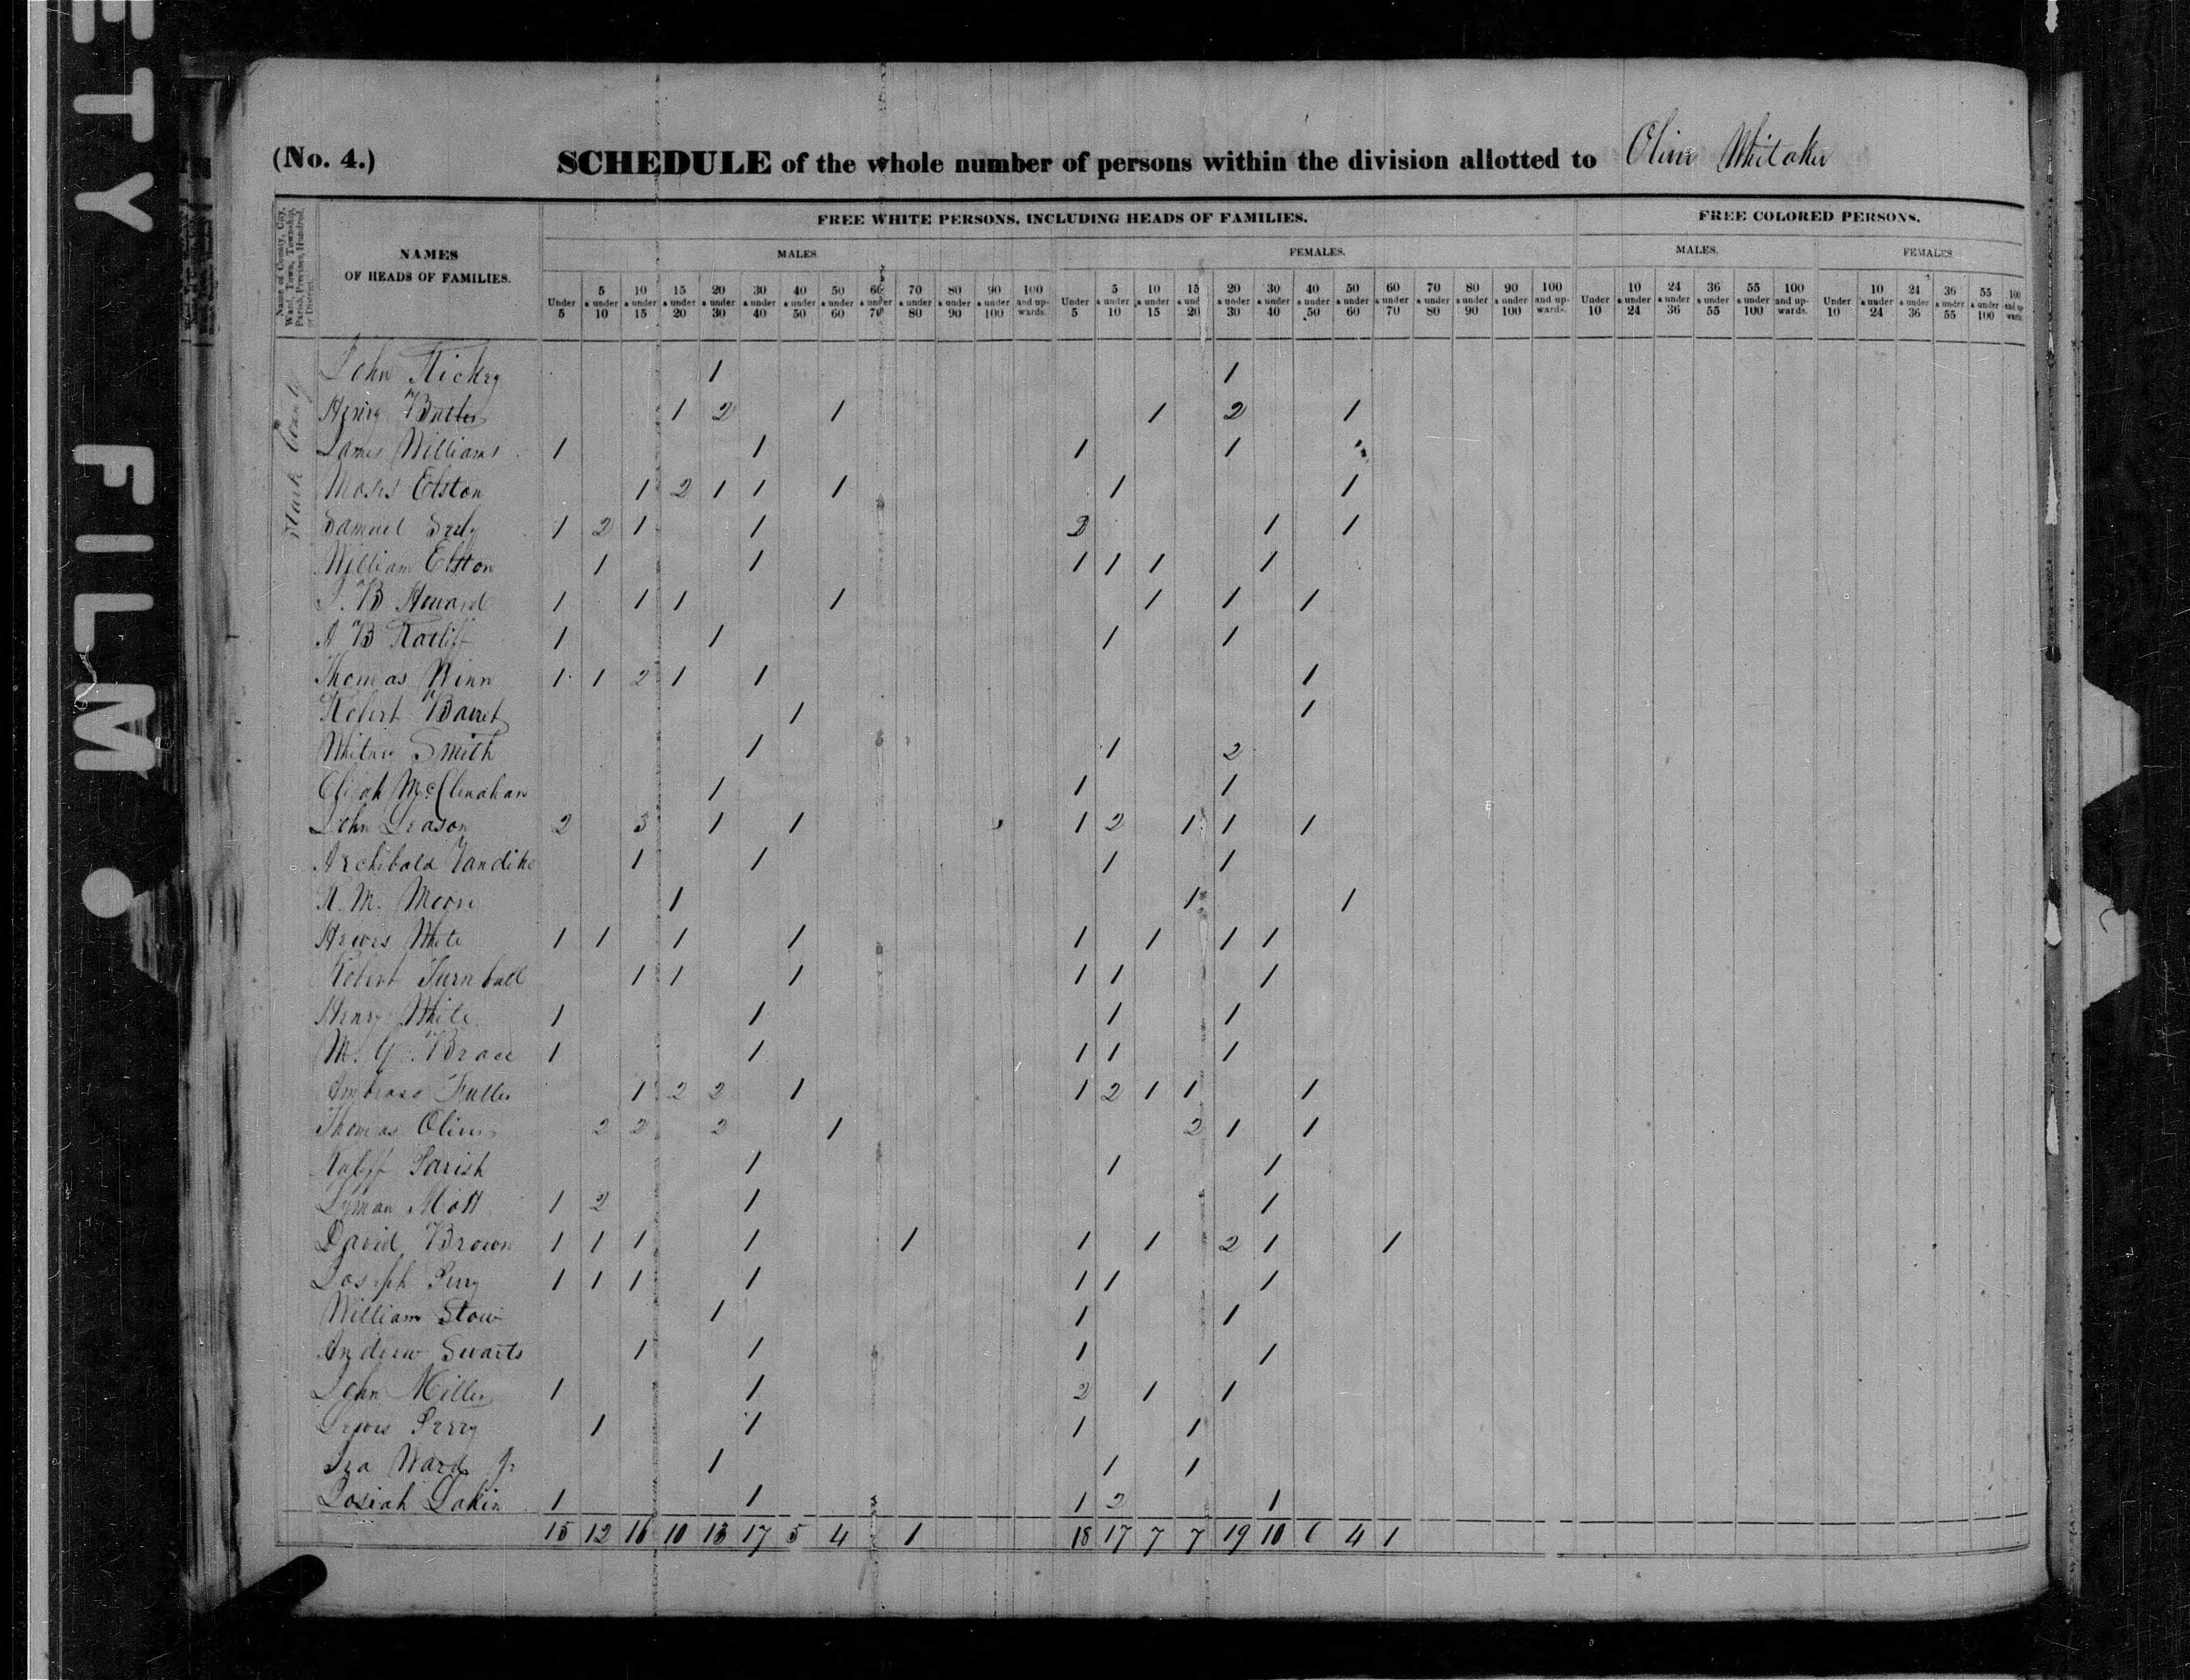 ETY FILM
(No. 4.) SCHEDULE of the whole number of persons within the division allotted to Oliver Whitaker
Name of County, City, Ward, Town, Township, Parish, Precinct, Hundred, or District.
NAMES OF HEADS OF FAMILIES.
FREE WHITE PERSONS, INCLUDING HEADS OF FAMILIES.
FREE COLORED PERSONS.
MALES. FEMALES. MALES. FEMALES.
Under 5 5 & under 10 10 & under 15 15 & under 20 20 & under 30 30 & under 40 40 & under 50 50 & under 60 60 & under 70 70 & under 80 80 & under 90 90 & under 100 100 and upwards. Under 5 5 & under 10 10 & under 15 15 & und 20 20 & under 30 30 & under 40 40 & under 50 50 & under 60 60 & under 70 70 & under 80 80 & under 90 90 & under 100 100 and upwards. Under 10 10 & under 24 24 & under 36 36 & under 55 55 & under 100 100 and upwards. Under 10 10 & under 24 24 & under 36 36 & under 55 55 & under 100 100 and upwards
Stark County
John Hickey 1 1
Henry Butler 1 2 1 1 2 1
James Williams 1 1 1 1
Moses Elston 1 2 1 1 1 1 1
Samuel 1 2 1 1 1 1
William Elston 1 1 1 1 1 1
J. B Howard 1 1 1 1 1 1 1
A B Ratliff 1 1 1 1
Thomas Winn 1 1 2 1 1 1
Robert Barret 1 1
Whitney Smith 1 1 2
Elijah McClenahan 1 1 1
John 2 3 1 1 1 2 1 1 1
Archibald Vandike 1 1 1 1
M. Moore 1 1 1
White 1 1 1 1 1 1 1 1
Robert Turnbull 1 1 1 1 1 1
Henry White 1 1 1 1
M. G. Brace 1 1 1 1 1
Ambrose Fuller 1 2 2 1 1 2 1 1 1
Thomas Oliver 2 2 2 1 2 1 1
Parish 1 1 1
Lyman Mott 1 2 1 1
David Brown 1 1 1 1 1 1 1 2 1 1
Joseph Perry 1 1 1 1 1 1 1
William Stow 1 1 1
Andrew Swarts 1 1 1 1
John Miller 1 1 2 1 1
Lewis Perry 1 1 1 1
Ira Ward Jr 1 1 1
Josiah Lakin 1 1 1 2 1
15 12 16 10 13 17 5 4 1 18 17 7 7 19 10 6 4 1